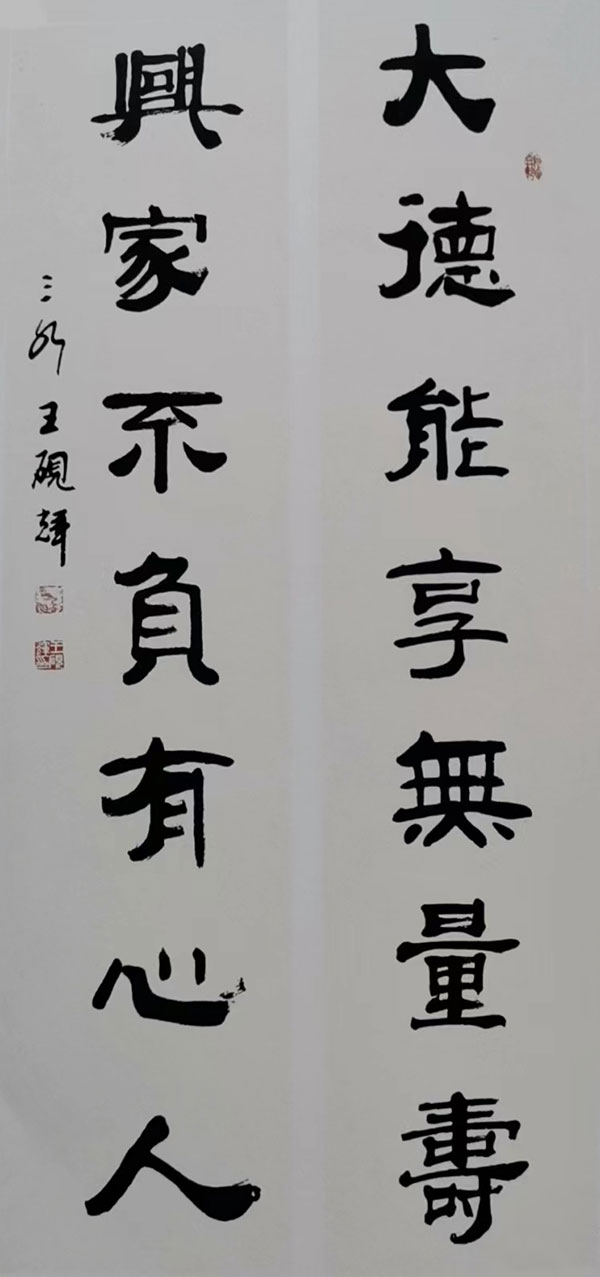 大德能享無量壽
興家不負有心人
王硯輝